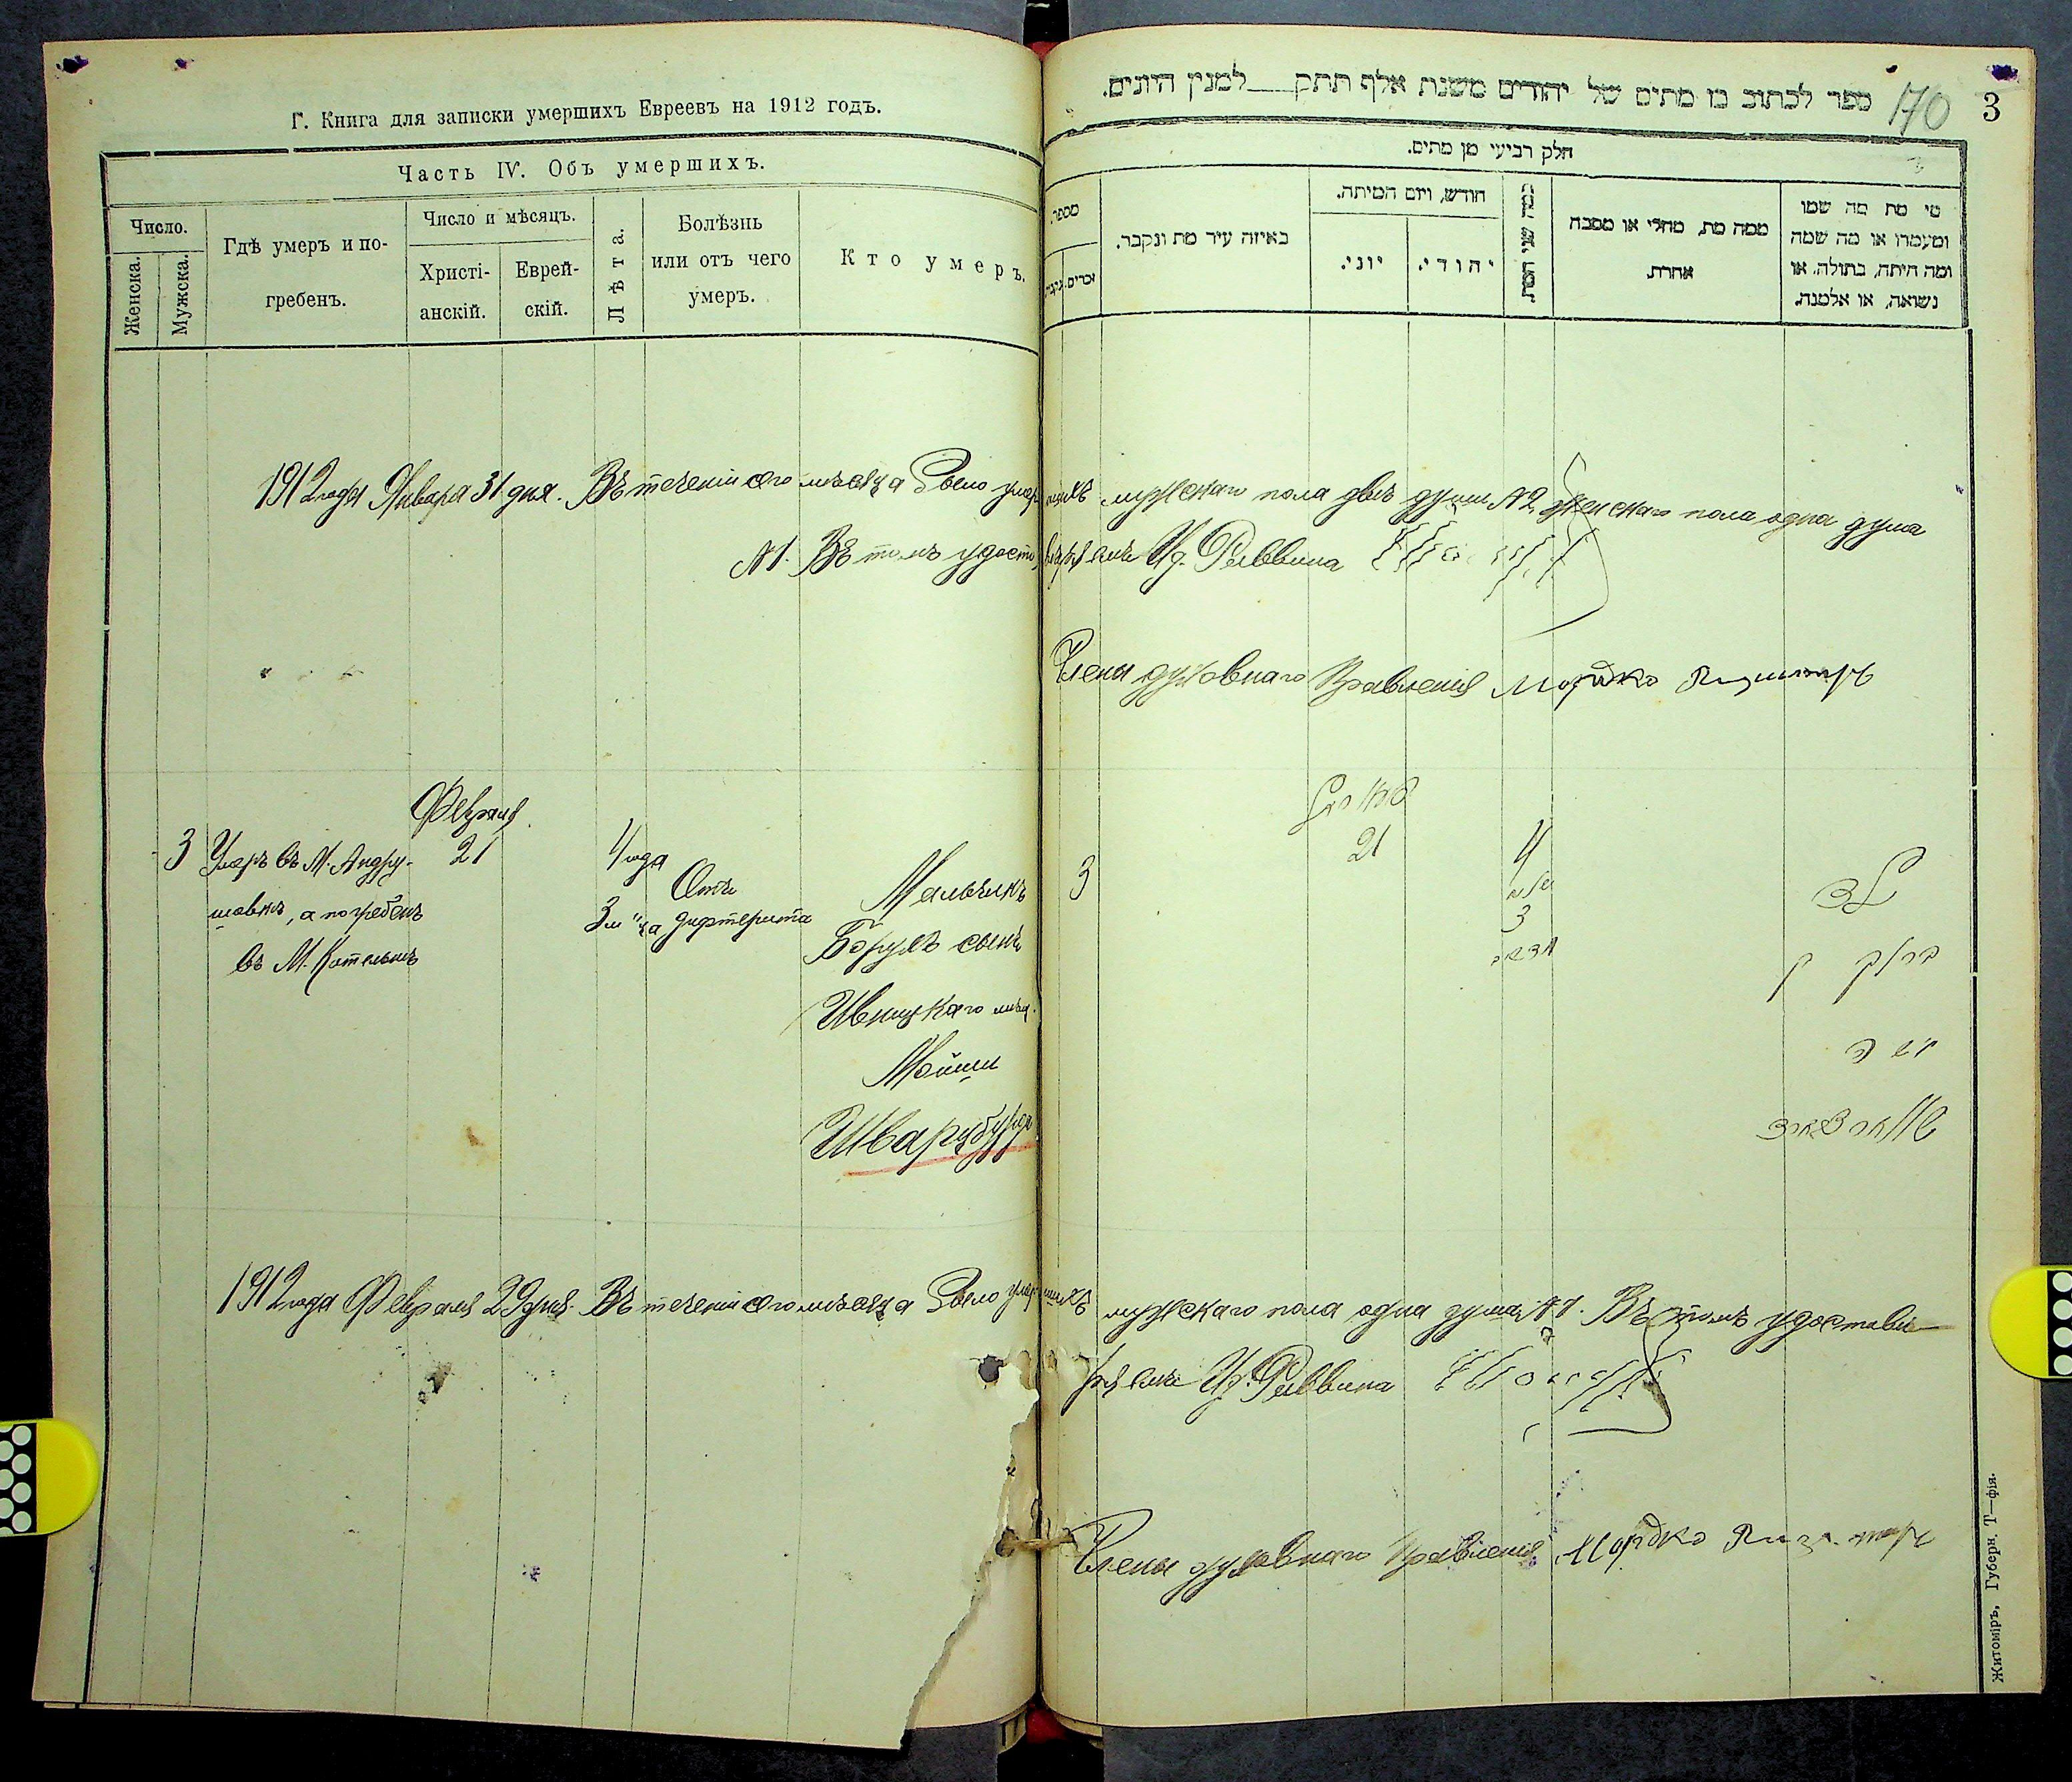 Г. Книга для записки умершихъ Евреевъ на 1912 годъ.
Часть IV. Объ умершихъ.
Число.
Женска.
Мужска.
Гдѣ умеръ и по-
гребенъ.
Число и мѣсяцъ.
Христі-
анскій.
Еврей-
скій.
Лѣта.
Болѣзнь
или отъ чего
умеръ.
Кто умеръ.
ספר לכתוב בו מתים של יהודים משנת אלף תתק למנין היונים.
170
3
חלק רביעי מן מתים.
מספר.
זכרים.
באיזה עיר מת ונקבר.
חודש, ויום המיתה.
יוני.
יהודי.
כמה שני המת.
ממה מת, מחלי או מסבה
אחרת.
מי מת מה שמו
ומעמדו או מה שמה
ומה היתה, בתולה, או
נשואה, או אלמנה.
1912 года Января 31 дня. Въ теченіи сего мѣсяца было умершихъ мужскаго пола двѣ души №2 женскаго пола одна душа
№1. Въ томъ удостовѣряемъ И д. Раввина
Члены духовнаго Правленія Мордко
Февраля
3 Умеръ въ М. Андру-
шовкѣ, а погребенъ
въ М. Котельнѣ
21
4 года
3 м-ца
Отъ
дифтерита
Мальчикъ
Борухъ сынъ
Ивницкаго мѣщ.
Мойши
Шварцбурда
3
21
4
שנה
3
ילד
ברוך בן
משה
1912 года Февраля 29 дня. Въ теченіи сего мѣсяца было умершихъ мужскаго пола одна душа №1. Въ томъ удостовѣ-
ряемъ И д. Раввина
Члены духовнаго Правленія Мордко
Житоміръ, Губерн. Т—фія.